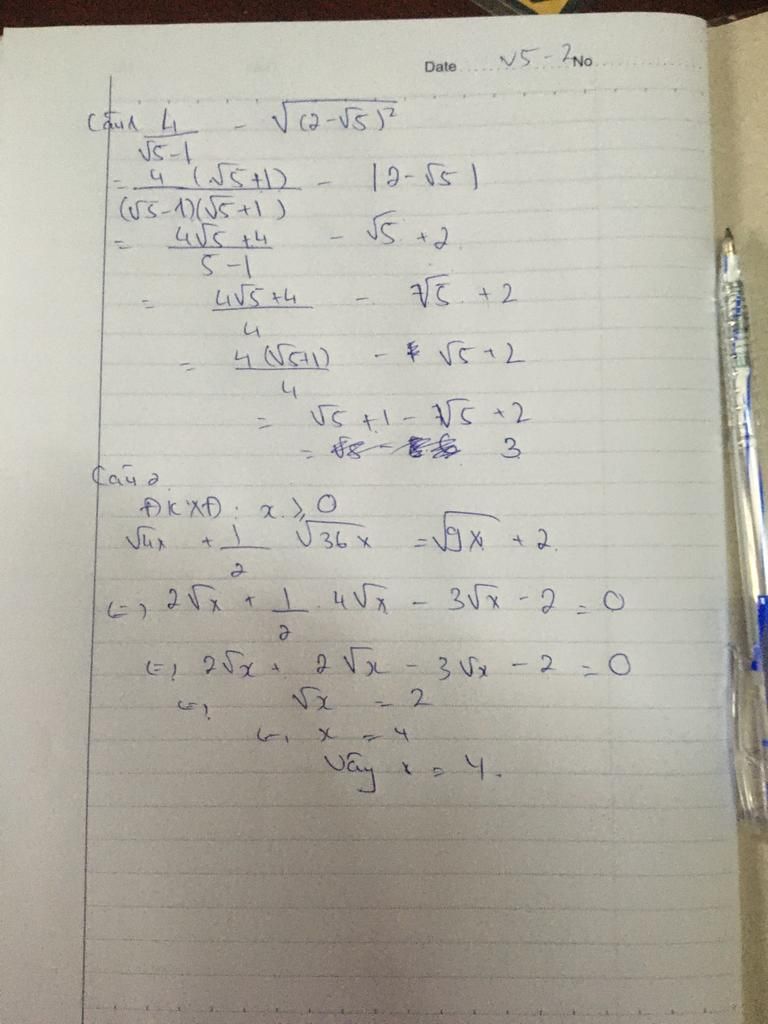 Date √5 - 2 No
Câu 1 4/(√5-1) - √((2-√5)²)
= 4(√5+1)/((√5-1)(√5+1)) - |2-√5|
= (4√5+4)/(5-1) - √5 + 2
= (4√5+4)/4 - √5 + 2
= 4(√5+1)/4 - √5 + 2
= √5 + 1 - √5 + 2
= 3
Câu 2
ĐKXĐ: x ≥ 0
√4x + 1/2 √36x = √9x + 2
<=> 2√x + 1/2 . 4√x - 3√x - 2 = 0
<=> 2√x + 2√x - 3√x - 2 = 0
<=> √x = 2
<=> x = 4
Vậy x = 4.